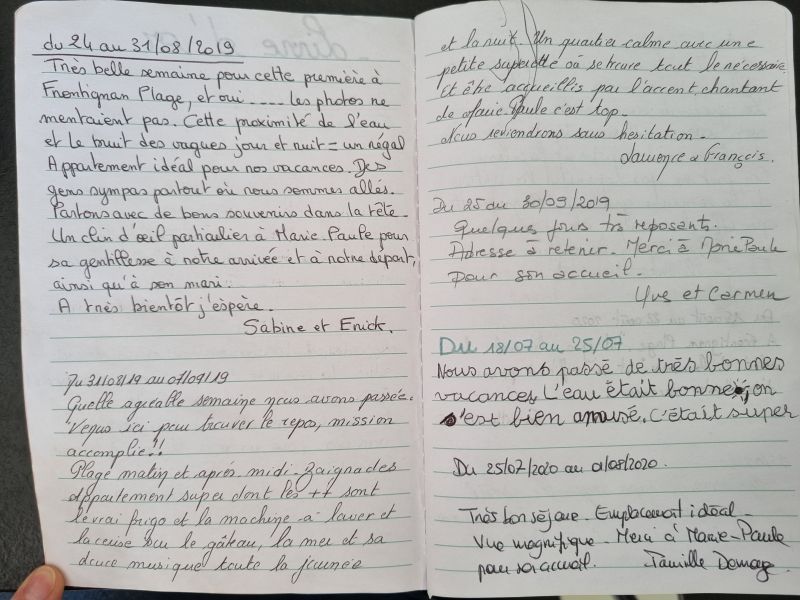 du 24 au 31/08/2019
Très belle semaine pour cette première à
Frontignan Plage, et oui .... les photos ne
mentaient pas. Cette proximité de l'eau
et le bruit des vagues jour et nuit = un régal
Appartement idéal pour nos vacances. Des
gens sympas partout où nous sommes allés.
Partons avec de bons souvenirs dans la tête.
Un clin d'œil particulier à Marie-Paule pour
sa gentillesse à notre arrivée et à notre départ,
ainsi qu'à son mari.
A très bientôt j'espère.
Sabine et Erick.
Du 31/08/19 au 07/09/19
Quelle agréable semaine nous avons passée.
Venus ici pour trouver le repos, mission
accomplie!!
Plage matin et après midi. Baignades
appartement super dont les ++ sont
le vrai frigo et la machine à laver et
la cerise sur le gâteau, la mer et sa
douce musique toute la journée
et la nuit. Un quartier calme avec une
petite supérette où se trouve tout le nécessaire
Et être accueillis par l'accent chantant
de Marie-Paule c'est top.
Nous reviendrons sans hesitation.
Laurence & François.
Du 25 au 30/09/2019
Quelques jours très reposants.
Adresse à retenir. Merci à Marie Paule
pour son accueil.
Yve et Carmen
Du 18/07 au 25/07
Nous avons passé de très bonnes
vacances, L'eau était bonne, on
s'est bien amusé. C'était super
Du 25/07/2020 au 01/08/2020.
Très bon séjour. Emplacement idéal.
Vue magnifique. Merci à Marie-Paule
pour son accueil. Famille